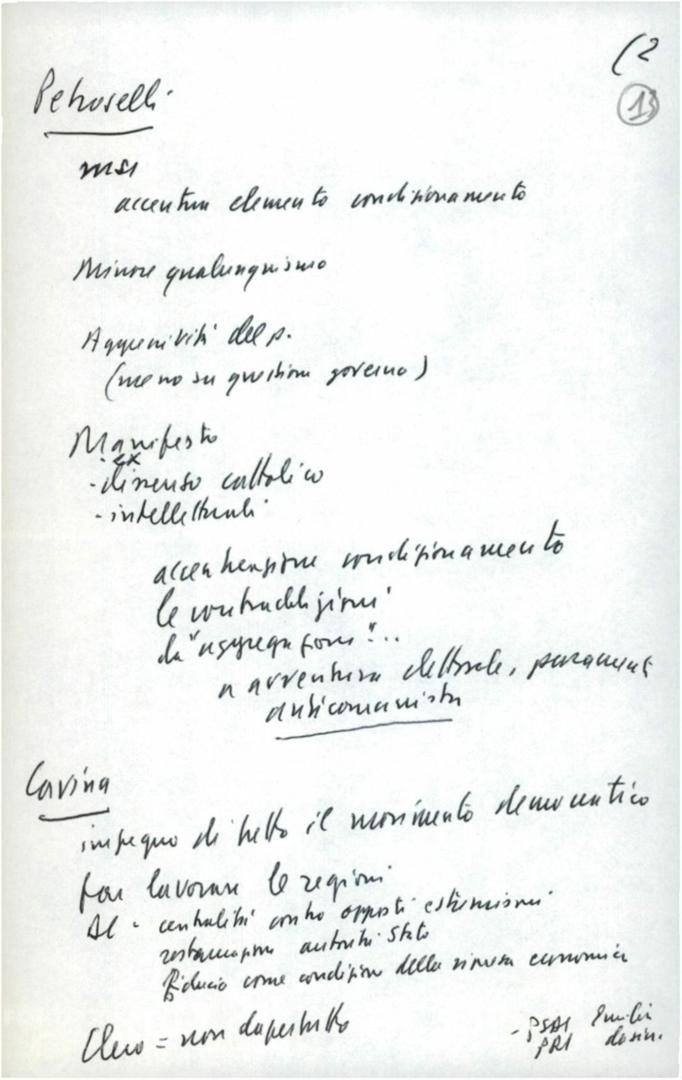 (2
13
Petroselli
MSI
accentua elemento condizionamento
Minore qualunquismo
Aggressività del p.
(meno su questione governo)
Manifesto
- ex
- dissenso cattolico
- intellettuali
accentuazione condizionamento
le contraddizioni
da "aggregazione"...
a avventura elettorale, puramente
anticomunista
Cavina
impegno di tutto il movimento democratico
far lavorare le regioni
DC - centralità contro opposti estremismi
restaurazione autorità Stato
fiducia come condizione della ripresa economica
Clero = non dappertutto
- PSDI Emilia
PRI